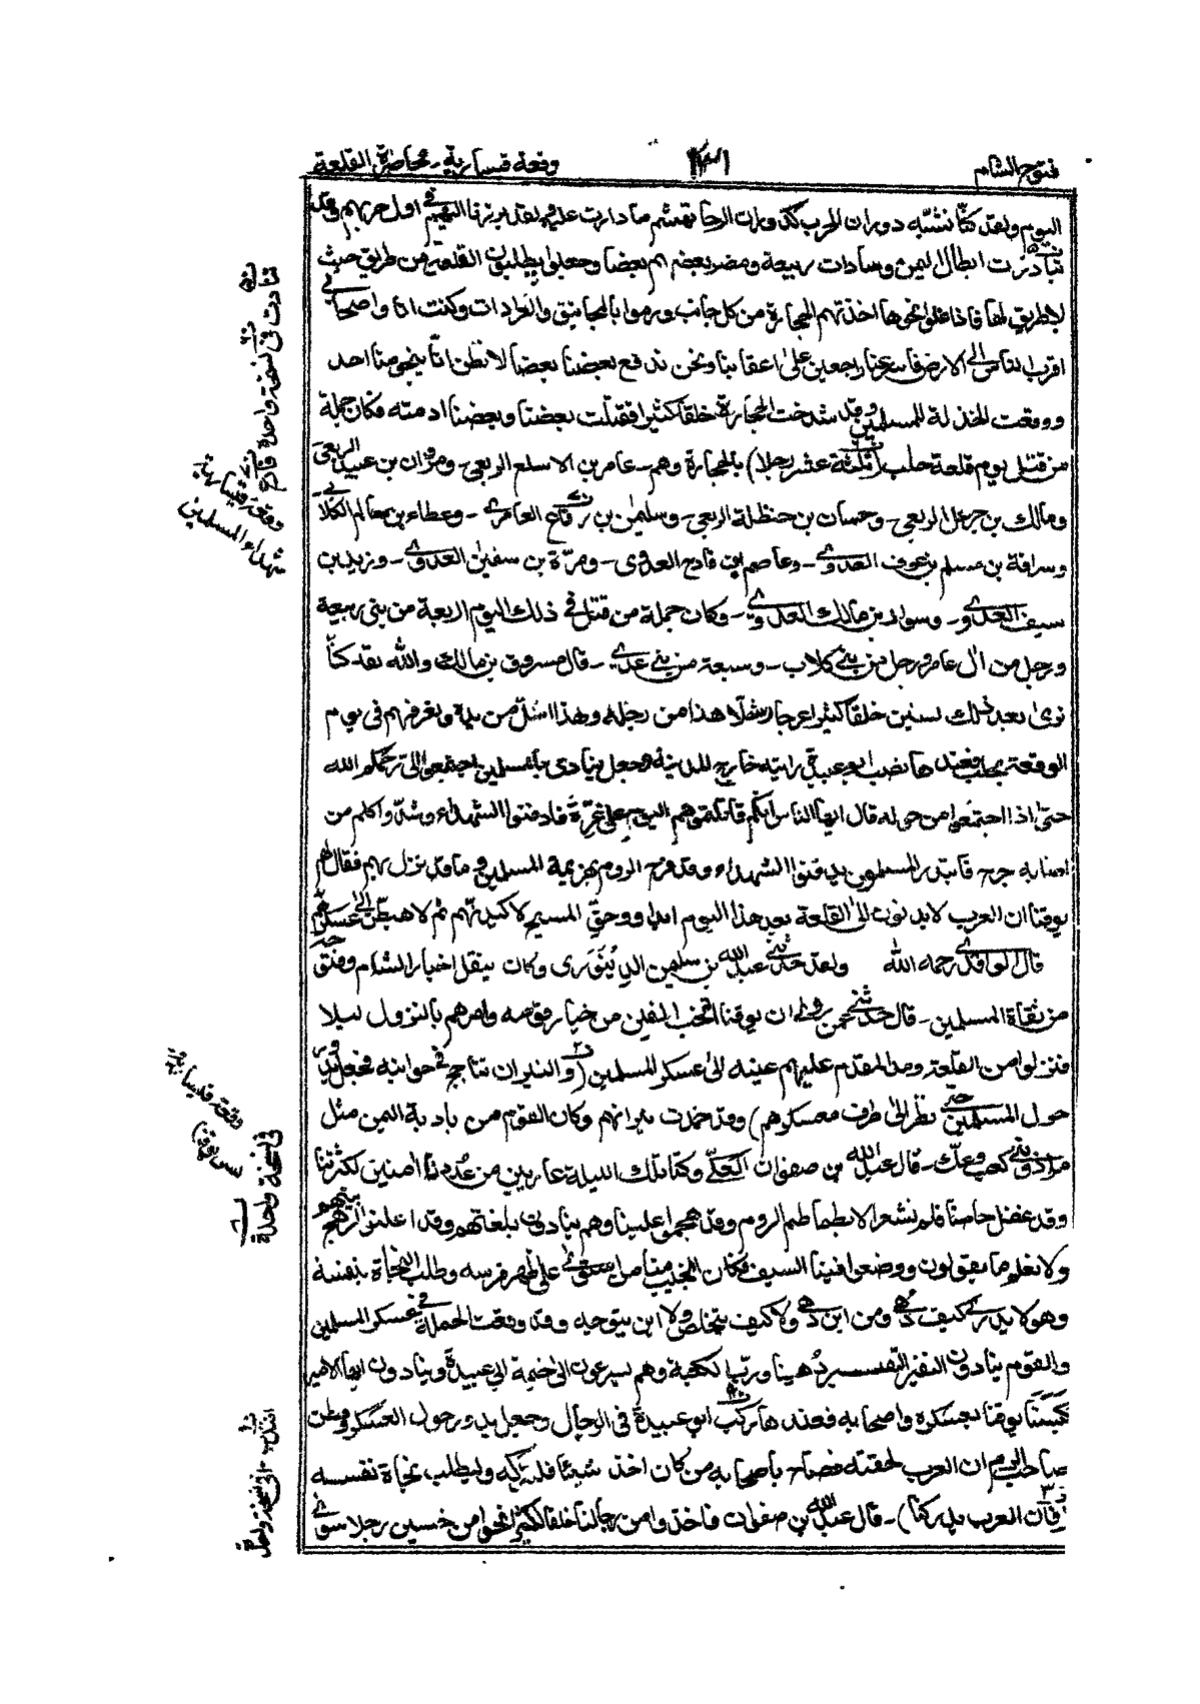 فتوح الشام
١٣١
وقعة قيسارية - محاصرة القلعة
اليوم ولقد كنا نشبه دوران الحرب كدوران الرحا تهشم ما دارت عليه ولقد برزنا اليهم في اول حربهم وقد
تبادرت ابطال اليمن وسادات ربيعة ومضر بعضهم بعضا وجعلوا يطلبون القلعة من طريق حيث
لا طريق لها فاذا علوا نحوها اخذتهم الحجارة من كل جانب ورموا بالمجانيق والعرادات وكنت انا واصحابي
اقرب الناس الى الارض فاسرعنا راجعين على اعقابنا ونحن ندفع بعضنا بعضا لا نظن انا ينجو منا احد
ووقعت الخذلة للمسلمين وقد شدخت الحجارة خلقا كثيرا فقتلت بعضنا وبعضنا ادمته فكان جملة
من قتل يوم قلعة حلب (ثلثة عشر رجلا) بالحجارة وهم - عامر بن الاسلع الربعي - ومروان بن عبيد الربعي
ومالك بن جرعل الربعي - وحسان بن حنظلة الربعي - وسليمن بن رفاع العامري - وعطاء بن سالم الكلابي
وسراقة بن مسلم بن عوف العدوي - وعاصم بن قادح العدوي - ومرة بن سفين العدوي - وزيد بن
سيف العدوي - وسواد بن مالك العدوي - وكان جملة من قتل في ذلك اليوم اربعة من بني ربيعة
ورجل من ال عامر ورجل من بني كلاب - وسبعة من بني عدي - قال مسروق بن مالك والله لقد كنا
نرى بعد ذلك بسنين خلقا كثيرا عرجا وشلا هذا من رجله وهذا اشل من يده ونعرفهم في يوم
الوقعة بحلب فعندها نصب ابو عبيدة رايته خارج المدينة وجعل ينادي يا مسلمين اجتمعوا الي رحمكم الله
حتى اذا اجتمعوا من حوله قال ايها الناس انكم قاتلتموهم اليوم على غرة فادفنوا الشهداء وشدوا كلم من
اصابه جرح فابتدر المسلمون يدفنوا الشهداء وقد فرح الروم بهزيمة المسلمين وما قد نزل بهم فقال لهم
يوقنا ان العرب لا يدنون الى القلعة بعد هذا اليوم ابدا ووحق المسيح لاكيدنهم ثم لاهبطن الى عسكرهم
قال الواقدي رحمه الله ولقد حدثني عبد الله بن سليمن الدينوري وكان ينقل اخبار الشام وفتوحه
من ثقاة المسلمين - قال حدثني ان يوقنا انتخب الفين من خيار قومه وامرهم بالنزول ليلا
فنزلوا من القلعة ومد المقدم عليهم عينه الى عسكر المسلمين (والنيران تتاجج في جوانبه فجعل يدور
حول المسلمين حتى نظر الى طرف معسكرهم) وقد خمدت نيرانهم وكان القوم من بادية اليمن مثل
مراد وبني كعب وعك - قال عبد الله بن صفوان البجلي وكنا تلك الليلة عاريين من عددنا امنين لكثرتنا
وقد غفل حارسنا فلم نشعر الا بطماطم الروم وقد هجموا علينا وهم ينادون بلغاتهم وقد اعلنوا الرهج بينهم
ولا نعلم ما يقولون ووضعوا فينا السيف فكان النجيب منا من استوى على ظهر فرسه وطلب النجاة بنفسه
وهو لا يدري كيف دهي ومن اين دهي ولا كيف يتخلص ولا اين يتوجه وقد وقعت الحملة في عسكر المسلمين
والقوم ينادون النفير النفير دهينا ورب الكعبة وهم يسرعون الى خيمة ابي عبيدة وينادون ايها الامير
كبسنا يوقنا بعسكره واصحابه فعندها ركب ابو عبيدة في الرجال وجعل يدور حول العسكر وفطن
صاحب الروم ان العرب لحقته فصاح باصحابه من كان اخذ شيئا فليتركه وليطلب نجاة نفسه
(فان العرب تدركنا) - قال عبد الله بن صفوان فاخذوا من رجالنا خلقا كثيرا نحوا من خمسين رجلا سوى
تبادرت في نسخة واحدة
وقعة قنسارية
شهداء المسلمين
في نسخة واحدة